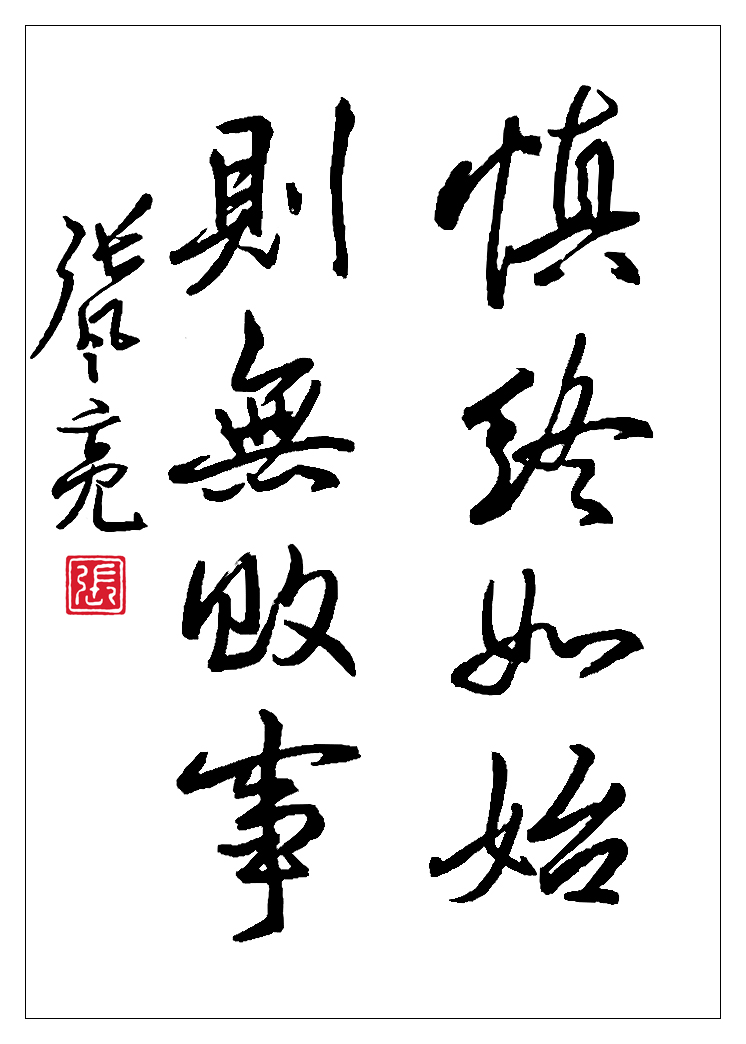 慎終如始
則無敗事
张 亮
張